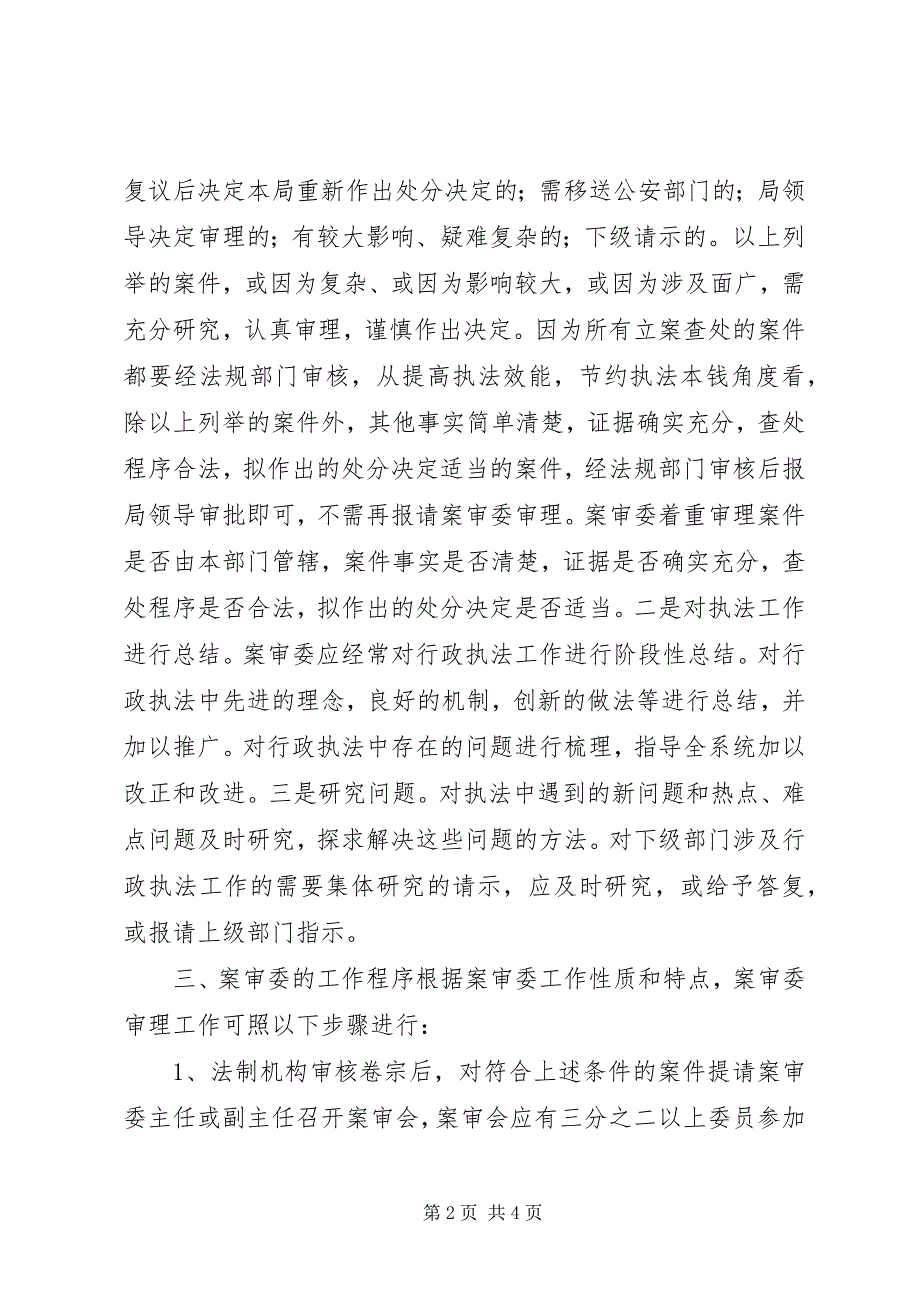 复议后决定本局重新作出处分决定的；需移送公安部门的；局领
导决定审理的；有较大影响、疑难复杂的；下级请示的。以上列
举的案件，或因为复杂、或因为影响较大，或因为涉及面广，需
充分研究，认真审理，谨慎作出决定。因为所有立案查处的案件
都要经法规部门审核，从提高执法效能，节约执法本钱角度看，
除以上列举的案件外，其他事实简单清楚，证据确实充分，查处
程序合法，拟作出的处分决定适当的案件，经法规部门审核后报
局领导审批即可，不需再报请案审委审理。案审委着重审理案件
是否由本部门管辖，案件事实是否清楚，证据是否确实充分，查
处程序是否合法，拟作出的处分决定是否适当。二是对执法工作
进行总结。案审委应经常对行政执法工作进行阶段性总结。对行
政执法中先进的理念，良好的机制，创新的做法等进行总结，并
加以推广。对行政执法中存在的问题进行梳理，指导全系统加以
改正和改进。三是研究问题。对执法中遇到的新问题和热点、难
点问题及时研究，探求解决这些问题的方法。对下级部门涉及行
政执法工作的需要集体研究的请示，应及时研究，或给予答复，
或报请上级部门指示。
三、案审委的工作程序根据案审委工作性质和特点，案审委
审理工作可照以下步骤进行：
1、法制机构审核卷宗后，对符合上述条件的案件提请案审
委主任或副主任召开案审会，案审会应有三分之二以上委员参加
第 2 页 共 4 页